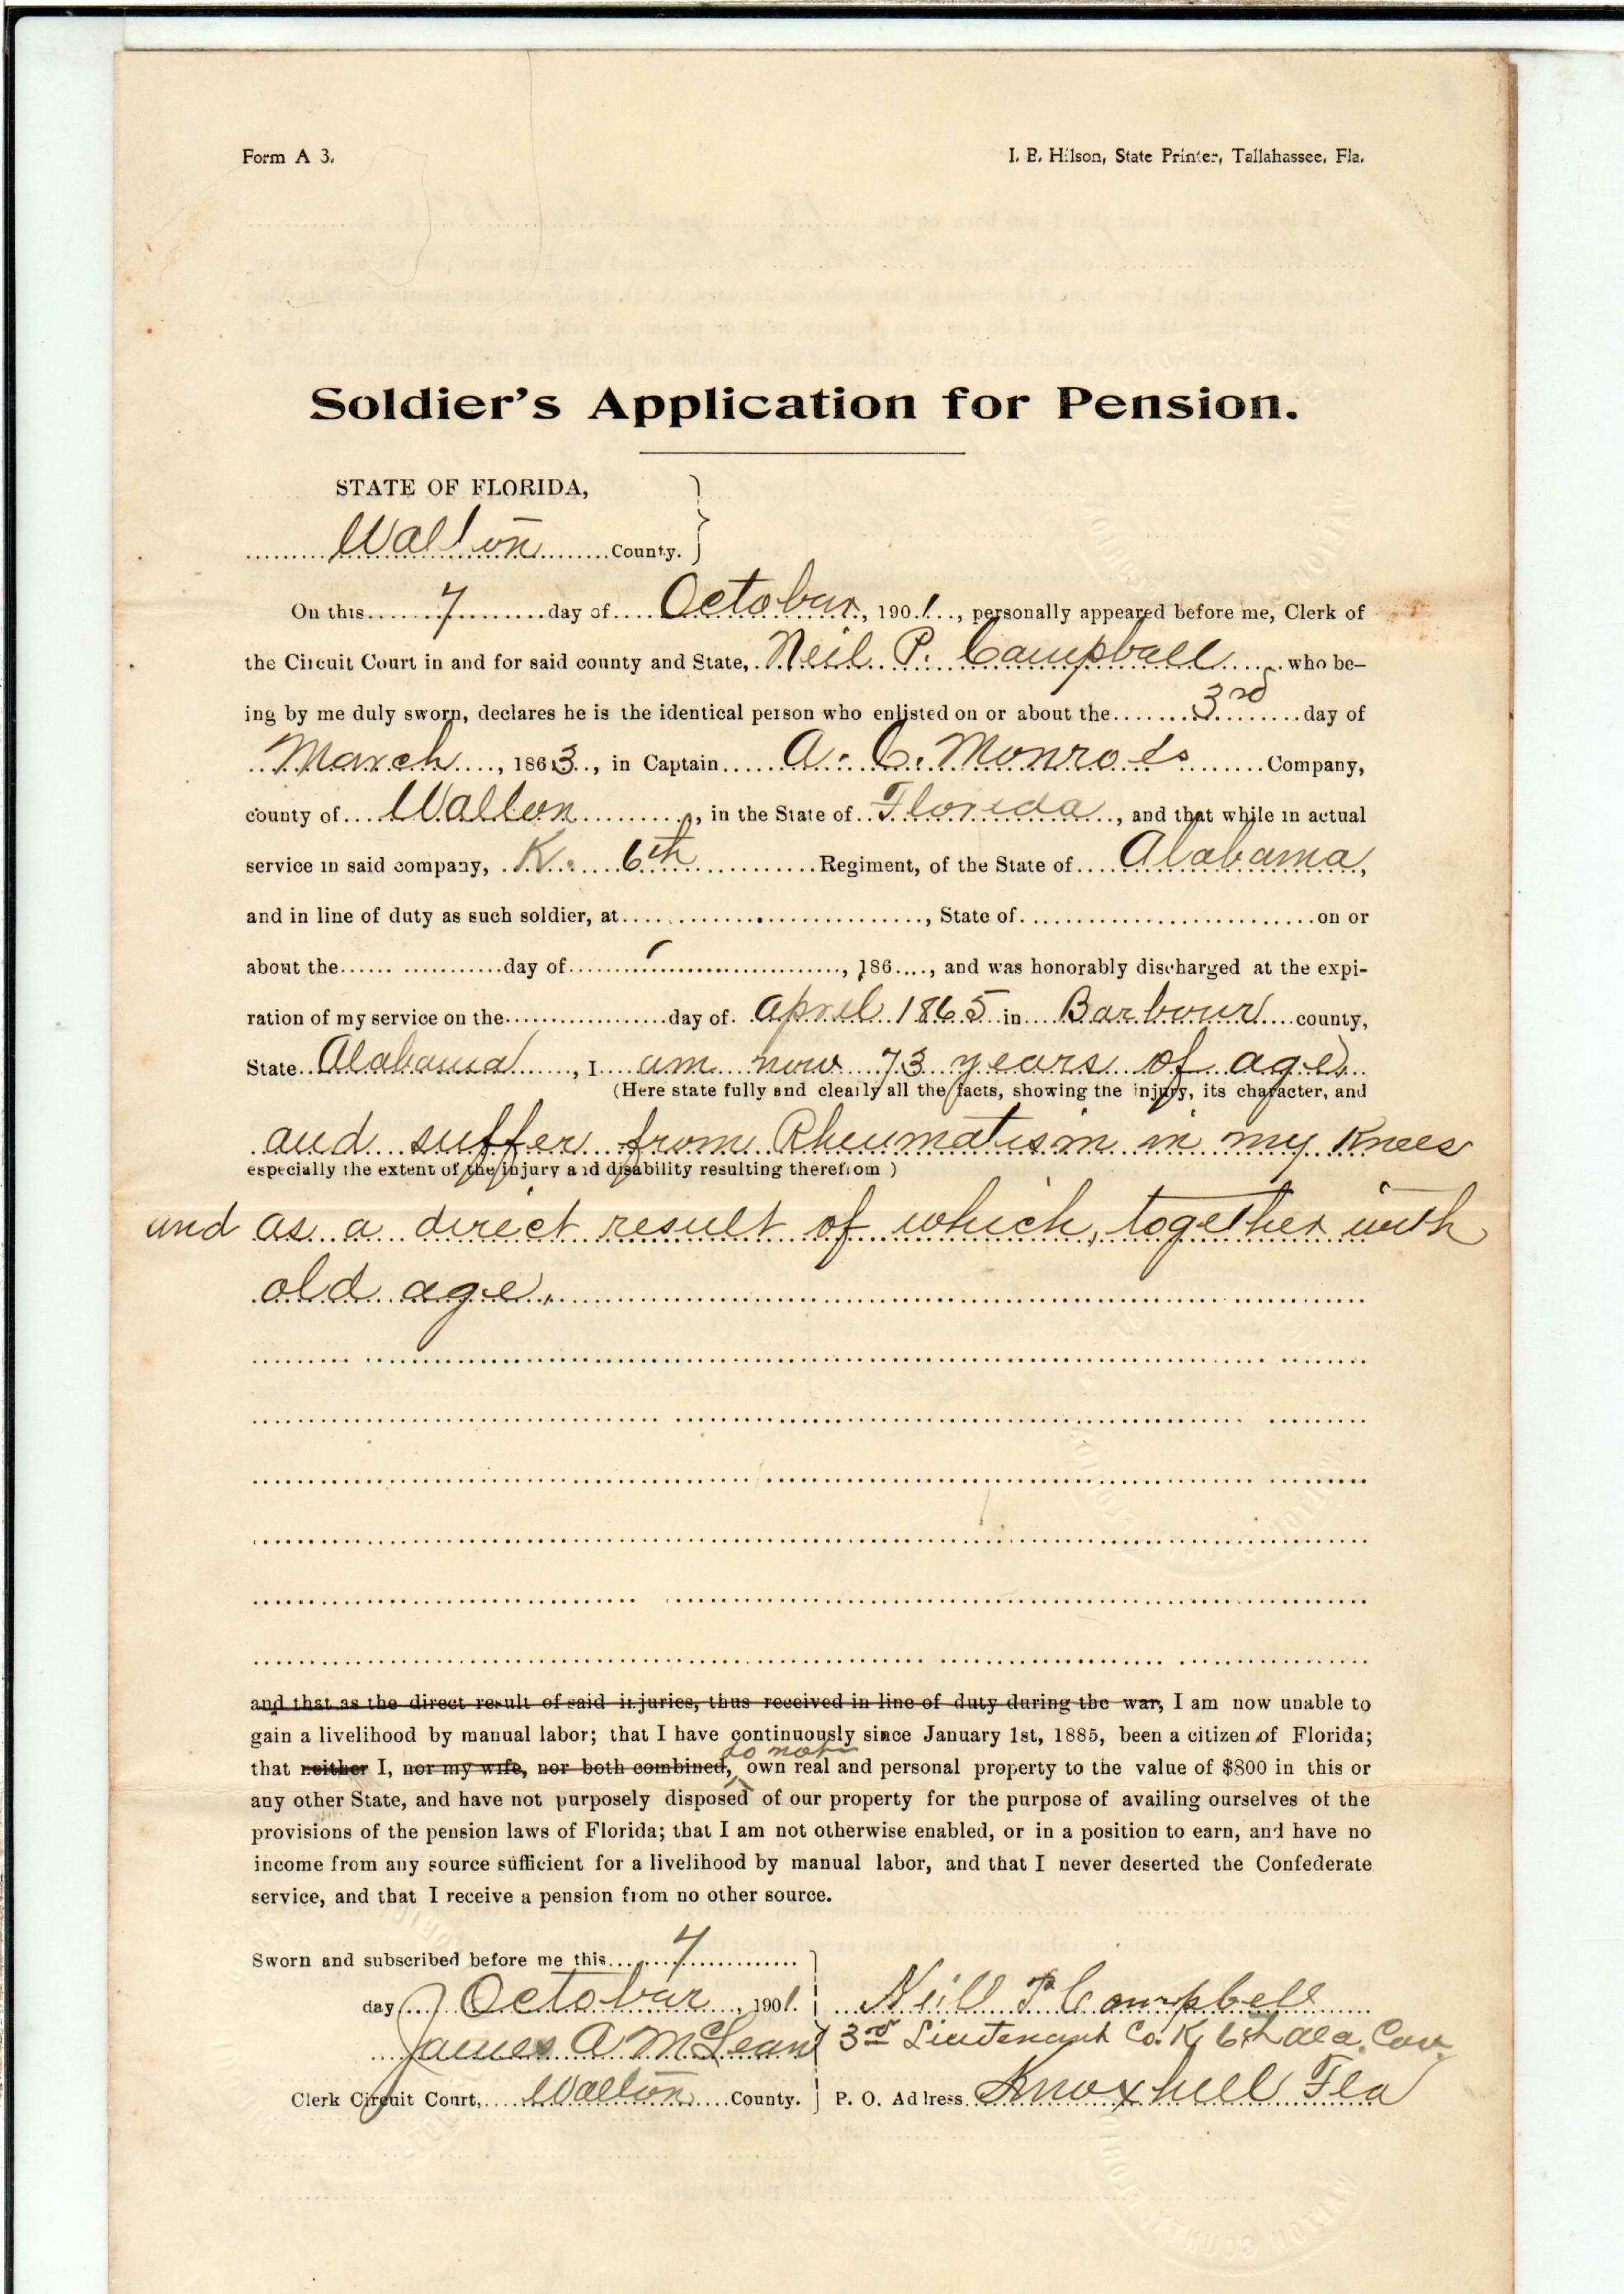 Form A 3.
I. B. Hilson, State Printer, Tallahassee, Fla.
Soldier's Application for Pension.
STATE OF FLORIDA,
Walton County.
On this 7 day of October, 1901, personally appeared before me, Clerk of
the Circuit Court in and for said county and State, Neil P. Campbell who be-
ing by me duly sworn, declares he is the identical person who enlisted on or about the 3rd day of
March, 1863, in Captain A. C. Monroes Company,
county of Walton, in the State of Florida, and that while in actual
service in said company, K. 6th Regiment, of the State of Alabama,
and in line of duty as such soldier, at, State of on or
about the day of, 186, and was honorably discharged at the expi-
ration of my service on the day of April 1865 in Barbour county,
State Alabama, I am now 73 years of age,
(Here state fully and clearly all the facts, showing the injury, its character, and
and suffer from Rheumatism in my Knees
especially the extent of the injury and disability resulting therefrom)
and as a direct result of which, together with
old age,
and that as the direct result of said injuries, thus received in line of duty during the war, I am now unable to
gain a livelihood by manual labor; that I have continuously since January 1st, 1885, been a citizen of Florida;
do not
that neither I, nor my wife, nor both combined, own real and personal property to the value of $800 in this or
any other State, and have not purposely disposed of our property for the purpose of availing ourselves of the
provisions of the pension laws of Florida; that I am not otherwise enabled, or in a position to earn, and have no
income from any source sufficient for a livelihood by manual labor, and that I never deserted the Confederate
service, and that I receive a pension from no other source.
Sworn and subscribed before me this 7
day October, 1901. Neill P Campbell
James A McLean 3rd Lieutenant Co. K, 6th Ala. Cav.
Clerk Circuit Court, Walton County. P. O. Address Knoxhill Fla